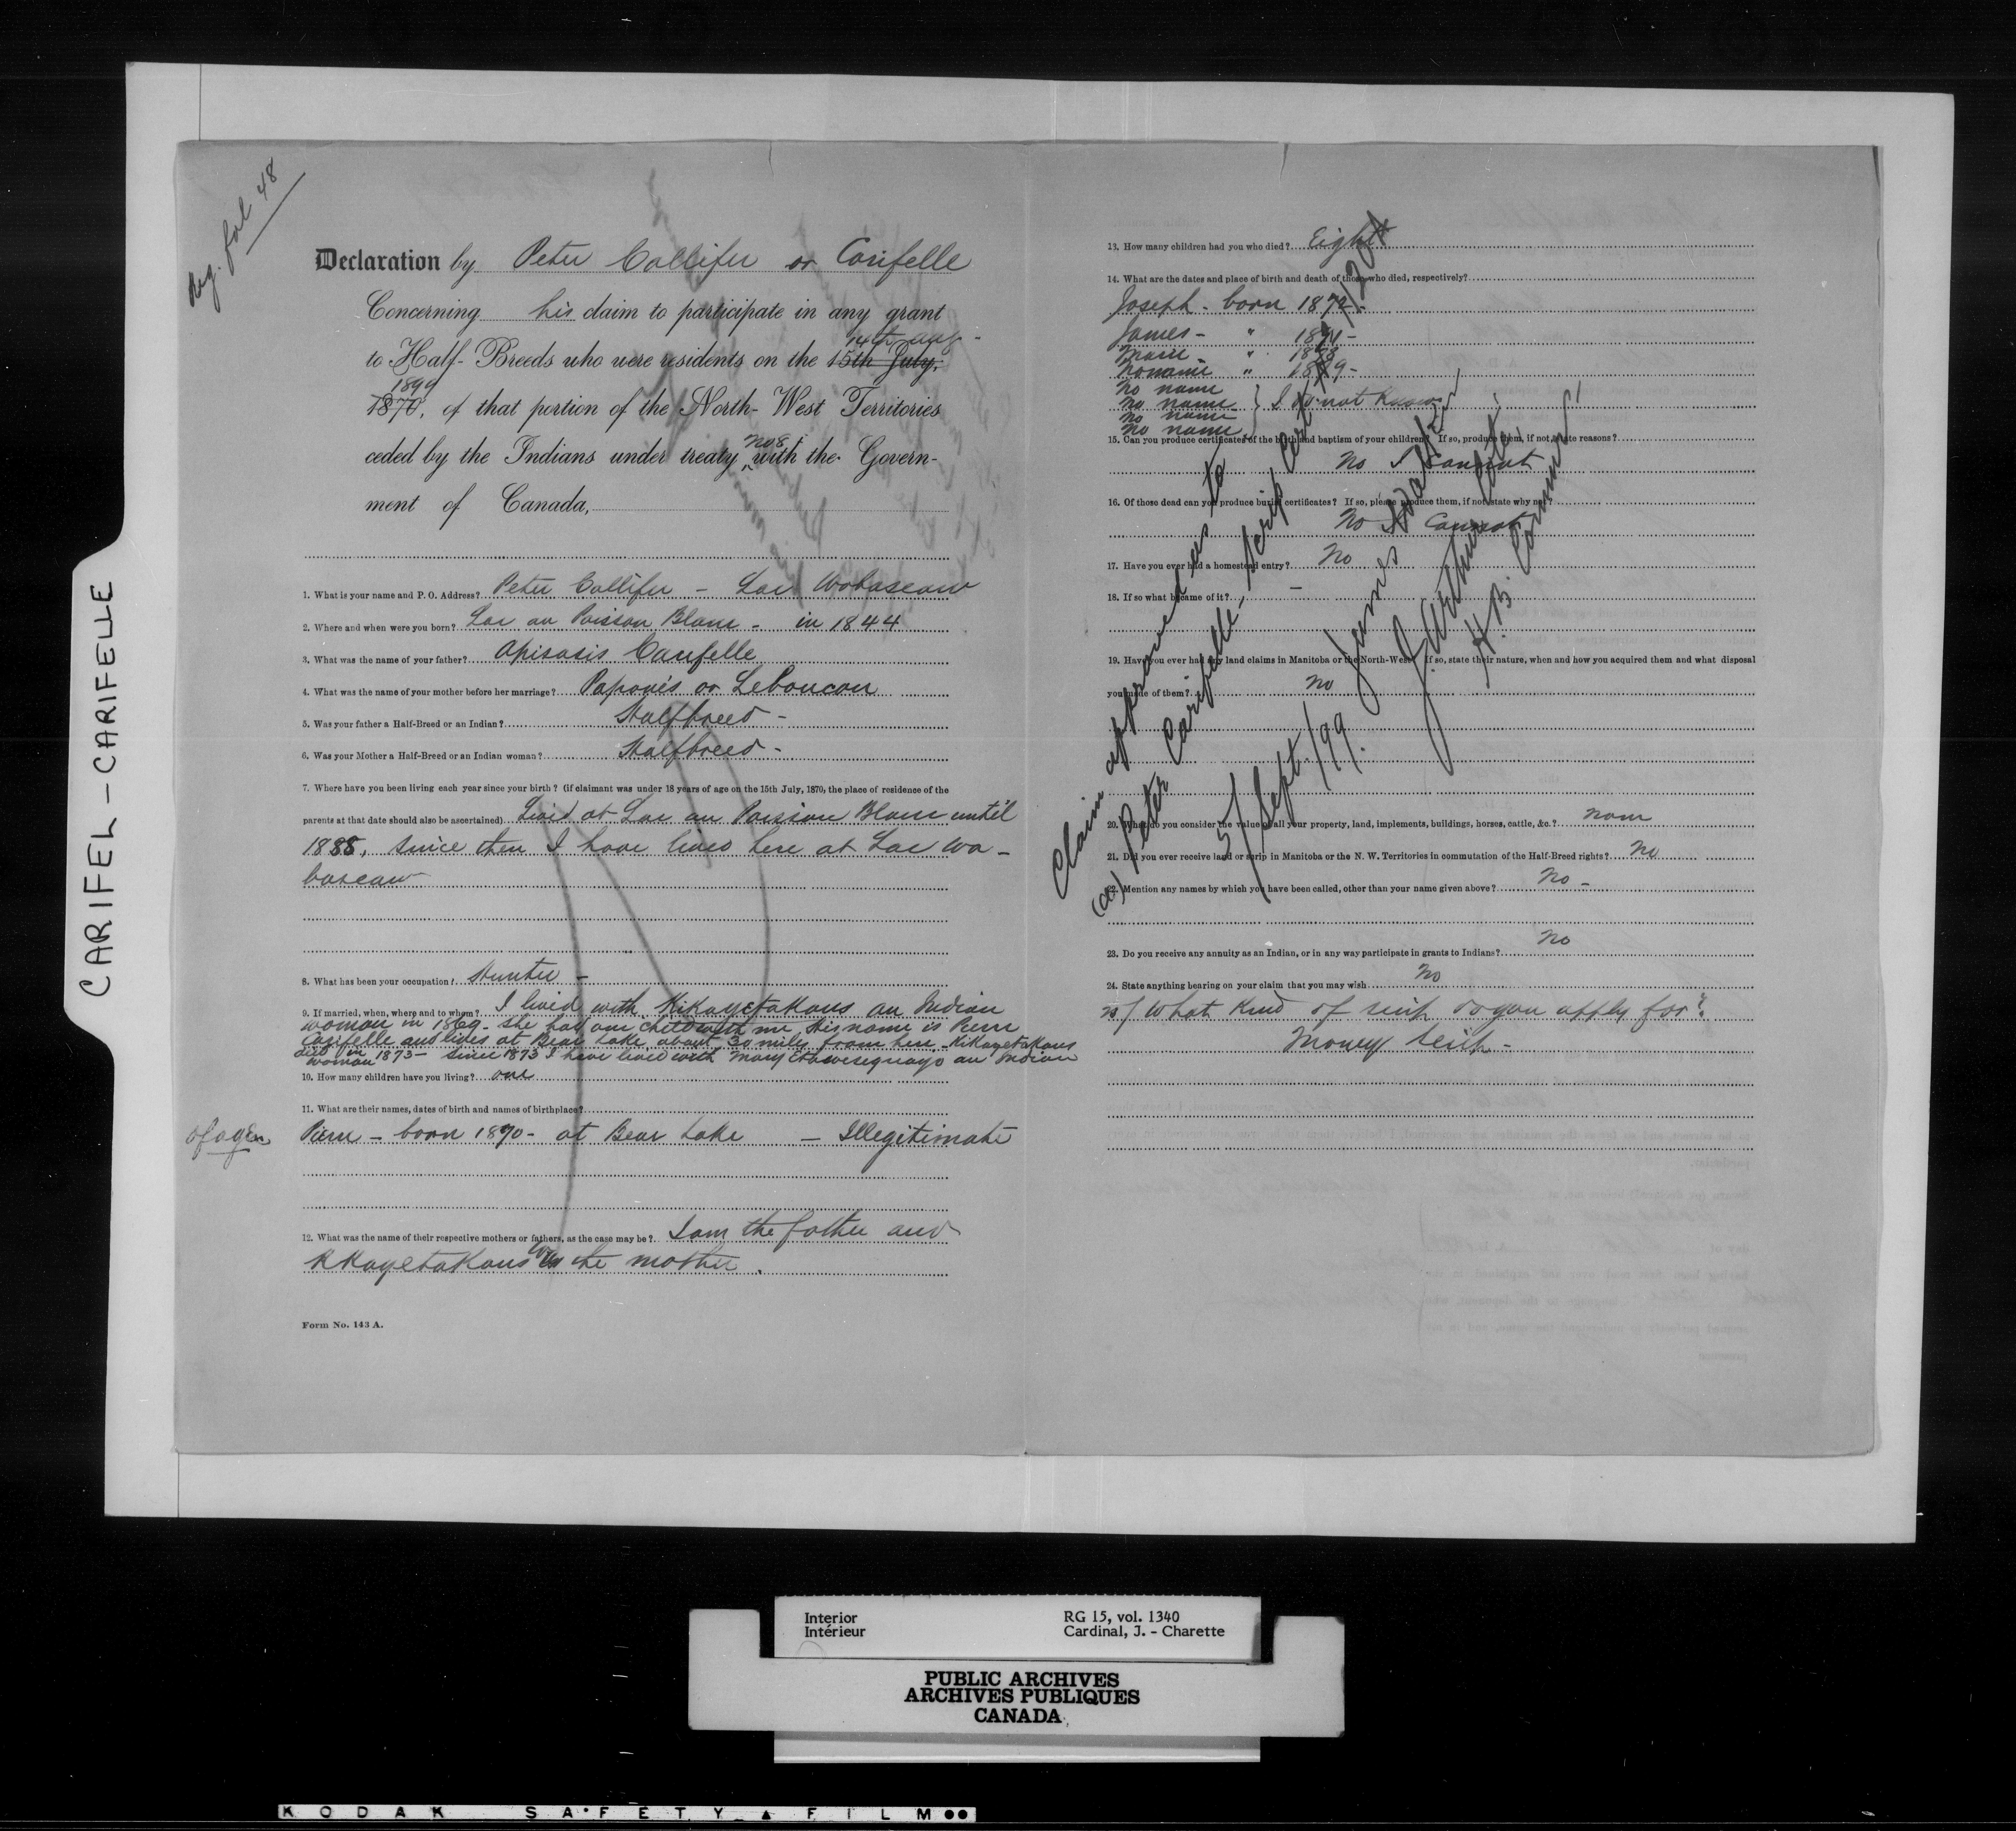 CARIFEL - CARIFELLE
Reg. fol 48
Declaration by Peter Callifer or Carifelle
Concerning his claim to participate in any grant
14th Aug -
to Half-Breeds who were residents on the 15th July,
1899
1870, of that portion of the North-West Territories
No 8
ceded by the Indians under treaty with the Govern-
ment of Canada,
1. What is your name and P. O. Address? Peter Callifer - Lac Wabascaw
2. Where and when were you born? Lac au Poisson Blanc - in 1844
3. What was the name of your father? Apisasis Carifelle
4. What was the name of your mother before her marriage? Paponis or Leboucon
5. Was your father a Half-Breed or an Indian? Halfbreed -
6. Was your Mother a Half-Breed or an Indian woman? Halfbreed -
7. Where have you been living each year since your birth? (if claimant was under 18 years of age on the 15th July, 1870, the place of residence of the
parents at that date should also be ascertained) Lived at Lac au Poisson Blanc until
1888, since then I have lived here at Lac Wa-
bascaw
8. What has been your occupation? Hunter -
9. If married, when, where and to whom? I lived with Kikayetakous an Indian
woman in 1869 - she had one child with me, His name is Pierre
Carifelle and lives at Bear Lake about 30 miles from here - Kikayetakous
died in 1873 - since 1873 I have lived with Mary an Indian
woman
10. How many children have you living? one
11. What are their names, dates of birth and names of birthplace?
of age Pierre - born 1870 - at Bear Lake - Illegitimate
12. What was the name of their respective mothers or fathers, as the case may be? I am the father and
Kikayetakous was the mother.
Form No. 143 A.
13. How many children had you who died? Eight
14. What are the dates and place of birth and death of those who died, respectively?
Joseph - born 1872 -
James - " 18
Marie - "
No name "
No name
No name } I do not know
No name
No name
15. Can you produce certificates of the birth and baptism of your children? If so, produce them, if not, state reasons?
No I cannot
16. Of those dead can you produce burial certificates? If so, please produce them, if not, state why not?
No I Cannot
17. Have you ever had a homestead entry? No
18. If so what became of it? -
19. Have you ever had any land claims in Manitoba or the North-West? If so, state their nature, when and how you acquired them and what disposal
you made of them? No
20. What do you consider the value of all your property, land, implements, buildings, horses, cattle, &c.? None
21. Did you ever receive land or scrip in Manitoba or the N. W. Territories in commutation of the Half-Breed rights? No
22. Mention any names by which you have been called, other than your name given above? No -
23. Do you receive any annuity as an Indian, or in any way participate in grants to Indians? No
24. State anything bearing on your claim that you may wish No
25/ What kind of scrip do you apply for?
Money Scrip -
Claim approved as to
(a) Peter Carifelle - Scrip Cert
5/Sept./99.
James Walker
J. Arthur Coté
H.B. Commrs
Interior
Intérieur
RG 15, vol. 1340
Cardinal, J. - Charette
PUBLIC ARCHIVES
ARCHIVES PUBLIQUES
CANADA
KODAK SAFETY FILM